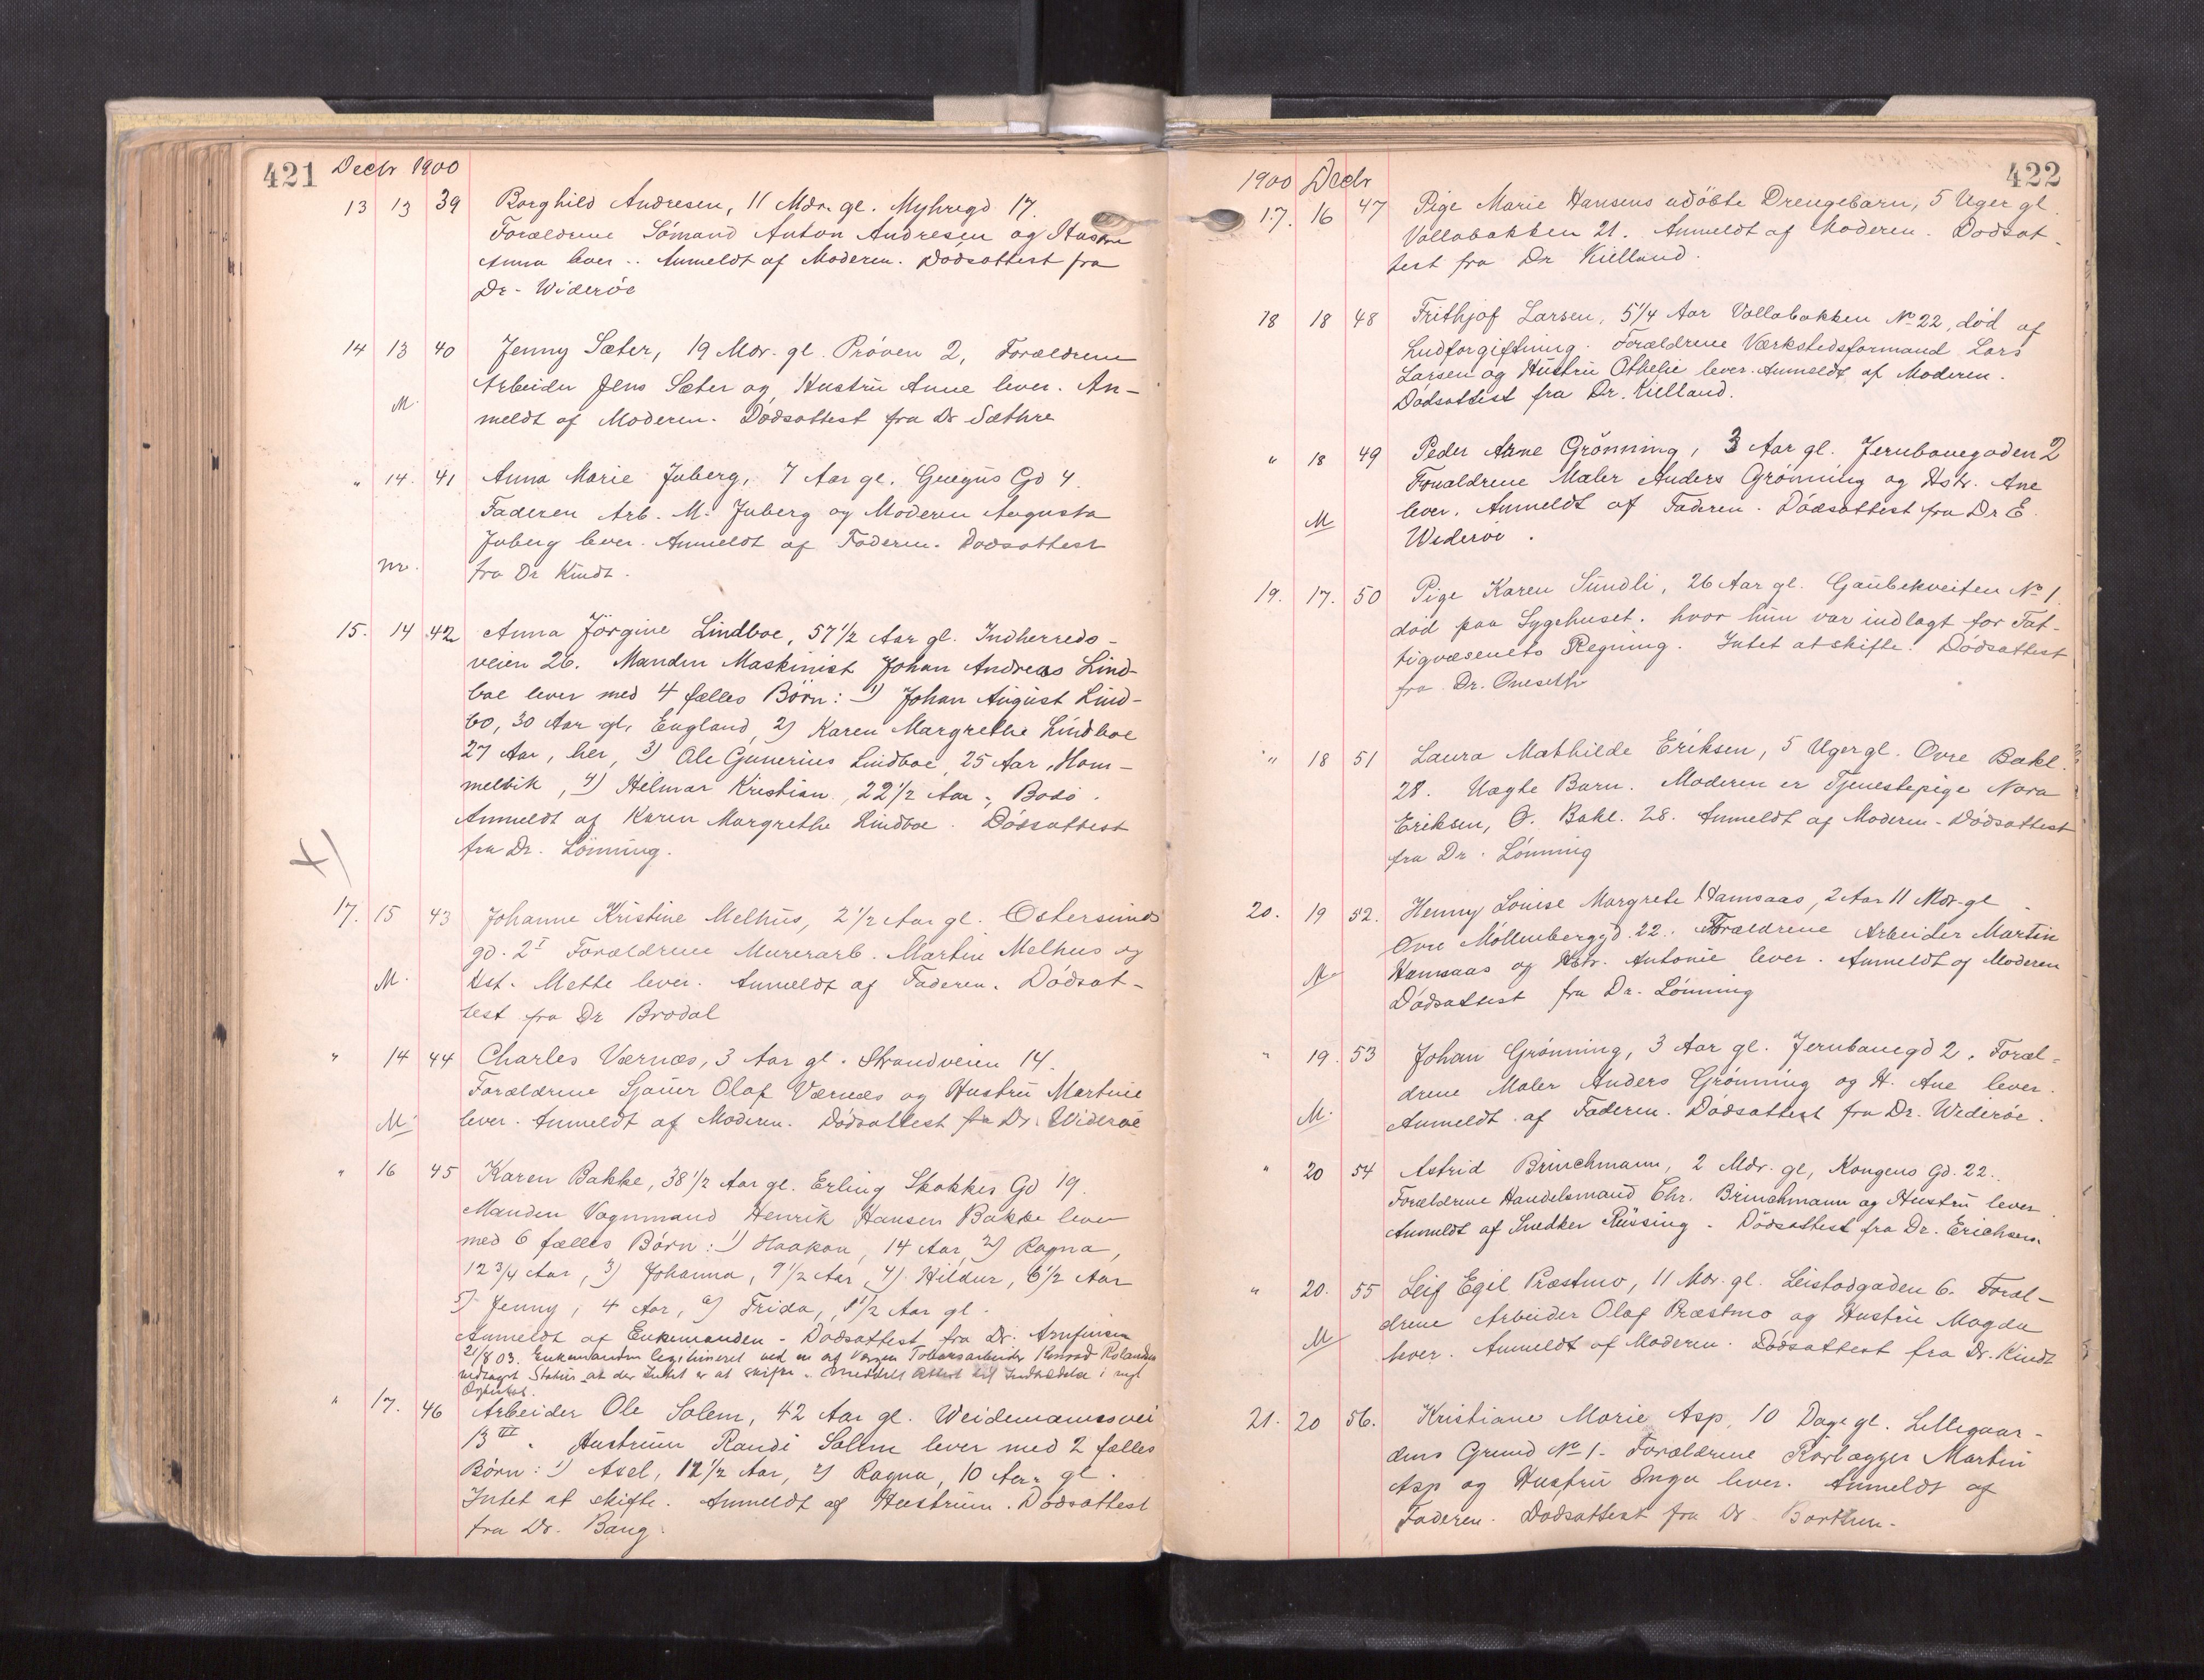 421 Decbr 1900
13 13 39 Borghild Andresen, 11 Mdr. gl. Myhregd 17.
Forældrene Sømand Anton Andresen og Hustru
Anna lever. Anmeldt af Moderen. Dødsattest fra
Dr. Widerøe
14 13 40 Jenny Sæter, 19 Mdr. gl. Prøven 2, Forældrene
Arbeider Jens Sæter og Hustru Anne lever. An-
M. meldt af Moderen. Dødsattest fra Dr Sæthre
" 14. 41 Anna Marie Juberg, 7 Aar gl. Gregus Gd 4.
Faderen Arb. M. Juberg og Moderen Augusta
Juberg lever. Anmeldt af Faderen. Dødsattest
fra Dr Kindt.
15. 14 42 Anna Jørgine Lindboe, 57 1/2 Aar gl. Indherreds-
veien 26. Manden Maskinist Johan Andreas Lind-
boe lever med 4 fælles Børn: 1) Johan August Lind-
bo, 30 Aar gl. England, 2) Karen Margrethe Lindboe
27 Aar, her, 3) Ole Gunerius Lindboe, 25 Aar, Hom-
melvik, 4) Hilmar Kristian, 22 1/2 Aar, Bodø.
Anmeldt af Karen Margrethe Lindboe. Dødsattest
fra Dr. Lønning.
17. 15 43 Johanne Kristine Melhus, 2 1/2 Aar gl. Østersunds
gd. 2 I Forældrene Murerarb. Martin Melhus og
M. Hst. Mette lever. Anmeldt af Faderen. Dødsat-
test fra Dr Brodal
" 14 44 Charles Værnæs, 3 Aar gl. Strandveien 14.
Forældrene Sjauer Olaf Værnæs og Hustru Martine
M. lever. Anmeldt af Moderen. Dødsattest fra Dr. Widerøe
" 16 45 Karen Bakke, 38 1/2 Aar gl. Erling Skakkes Gd 19.
Manden Vognmand Henrik Hansen Bakke lever
med 6 fælles Børn: 1) Haakon, 14 Aar, 2) Ragna,
12 3/4 Aar, 3) Johanna, 9 1/2 Aar, 4) Hildur, 6 1/2 Aar
5) Jenny, 4 Aar, 6) Frida, 1 1/2 Aar gl.
Anmeldt af Enkemanden. Dødsattest fra Dr. Arnfinsen
21/8 03. Enkemanden legitimeret ved en af Værgen Tobaksarbeider Konrad Rolandsen
vedtaget Status at der Intet er at skifte. Meddelt Attest til Indtrædelse i nyt
Ægteskab.
" 17. 46 Arbeider Ole Solem, 42 Aar gl. Weidemannsvei
13 III. Hustruen Randi Solem lever med 2 fælles
Børn: 1) Axel, 12 1/2 Aar, 2) Ragna, 10 Aar gl.
Intet at skifte. Anmeldt af Hustruen. Dødsattest
fra Dr. Bang.
1900 Decbr 422
17. 16 47 Pige Marie Hansens udøbte Drengebarn, 5 Uger gl.
Vollabakken 21. Anmeldt af Moderen. Dødsat-
test fra Dr Kielland.
18 18 48 Frithjof Larsen, 5 1/4 Aar Vollabakken No 22, død af
Ludforgiftning. Forældrene Værkstedsformand Lars
Larsen og Hustru Othelie lever. Anmeldt af Moderen.
Dødsattest fra Dr. Kielland.
" 18 49 Peder Arne Grønning, 3 Aar gl. Jernbanegaden 2
Forældrene Maler Anders Grønning og Hstr. Ane
M lever. Anmeldt af Faderen. Dødsattest fra Dr E.
Widerøe.
19. 17. 50 Pige Karen Sundli, 26 Aar gl. Gaubekveiten No 1.
død paa Sygehuset, hvor hun var indlagt for Fat-
tigvæsenets Regning. Intet at skifte. Dødsattest
fra Dr. Oneseth
" 18 51 Laura Mathilde Eriksen, 5 Uger gl. Øvre Bakl.
28. Uægte Barn. Moderen er Tjenestepige Nora
Eriksen, Ø. Bakl. 28. Anmeldt af Moderen. Dødsattest
fra Dr. Lønning
20. 19 52. Henny Louise Margrete Hamsaas, 2 Aar 11 Mdr. gl
Øvre Møllenberggd. 22. Forældrene Arbeider Martin
M. Hamsaas og Hstr. Antonie lever. Anmeldt af Moderen
Dødsattest fra Dr. Lønning
" 19. 53 Johan Grønning, 3 Aar gl. Jernbanegd 2. Foræl-
drene Maler Anders Grønning og H. Ane lever.
M. Anmeldt af Faderen. Dødsattest fra Dr. Widerøe.
" 20 54 Astrid Brinchmann, 2 Mdr. gl, Kongens Gd. 22.
Forældrene Handelsmand Chr. Brinchmann og Hustru lever.
Anmeldt af Snedker Rüssing. Dødsattest fra Dr. Erichsen
" 20. 55 Leif Egil Præstmo, 11 Mdr. gl. Leistadgaden 6. Foræl-
drene Arbeider Olaf Præstmo og Hustru Magda
M lever. Anmeldt af Moderen. Dødsattest fra Dr. Kindt
21. 20 56. Kristiane Marie Asp, 10 Dage gl. Lillegaar-
dens Grund No 1. Forældrene Rørlægger Martin
Asp og Hustru Inga lever. Anmeldt af
Faderen. Dødsattest fra Dr.